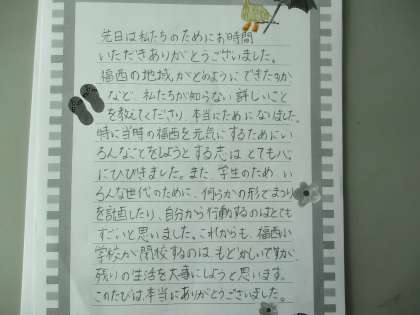 先日は私たちのためにお時間
いただきありがとうございました。
福西の地域がどのようにできたか
など、私たちが知らない詳しいこと
を教えてくださり、本当にためになりました。
特に当時の福西を元気にするためにい
ろんなことをしようとする志はとても心
にひびきました。また、学生のため、い
ろんな世代のために、何らかの形でまつり
を計画したり、自分から行動するのはとても
すごいと思いました。これからも、福西小
学校が閉校するのは、もどかしいですが、
残りの生活を大事にしようと思います。
このたびは、本当にありがとうございました。